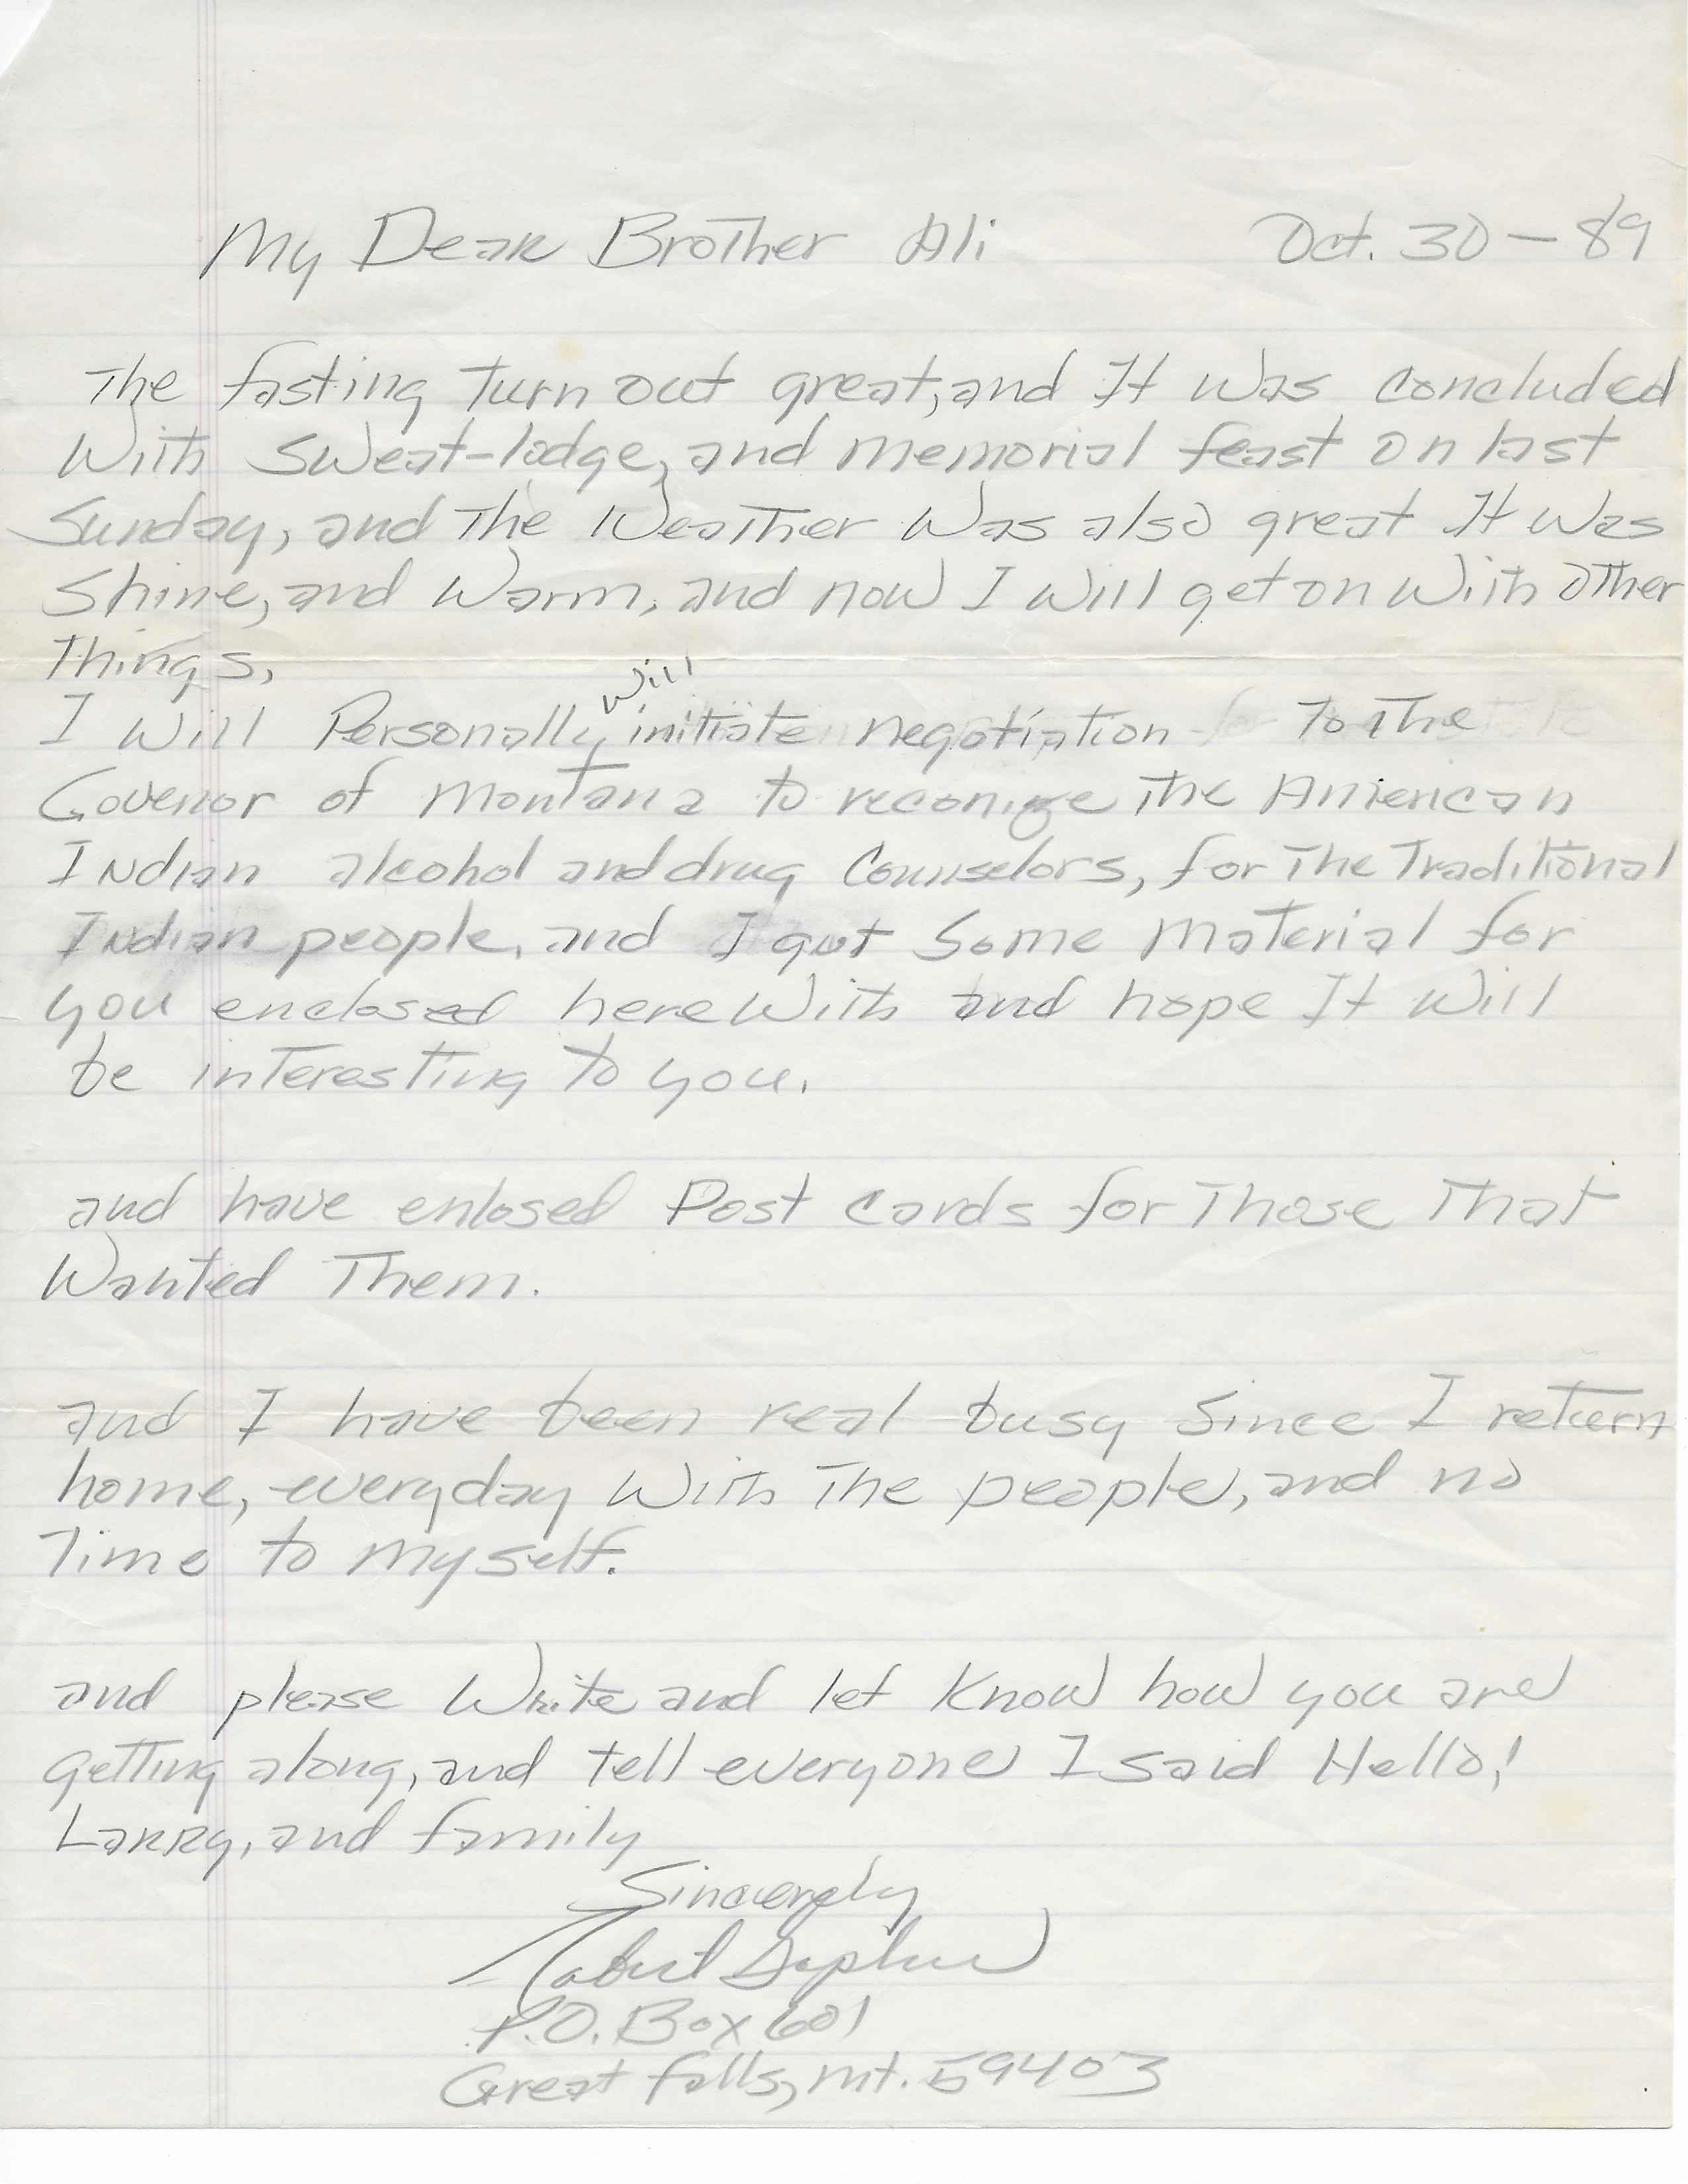 My Dear Brother Ali Oct. 30-89
The fasting turn out great, and It was concluded
with sweat-lodge, and memorial feast on last
Sunday, and the weather was also great It was
shine, and warm, and now I will get on with other
things,
I will Personally will initiate negotiation to the
Govenor of Montana to reconize the American
Indian alcohol and drug Counselors, for the Traditional
Indian people, and I got some material for
you enclosed here with and hope It will
be interesting to you.
and have enlosed Post cards for those that
wanted them.
and I have been real busy since I return
home, everyday with the people, and no
time to myself.
and please write and let know how you are
getting along, and tell everyone I said Hello!
Larry, and family
Sincerely
P.O. Box 601
Great falls, mt. 59403